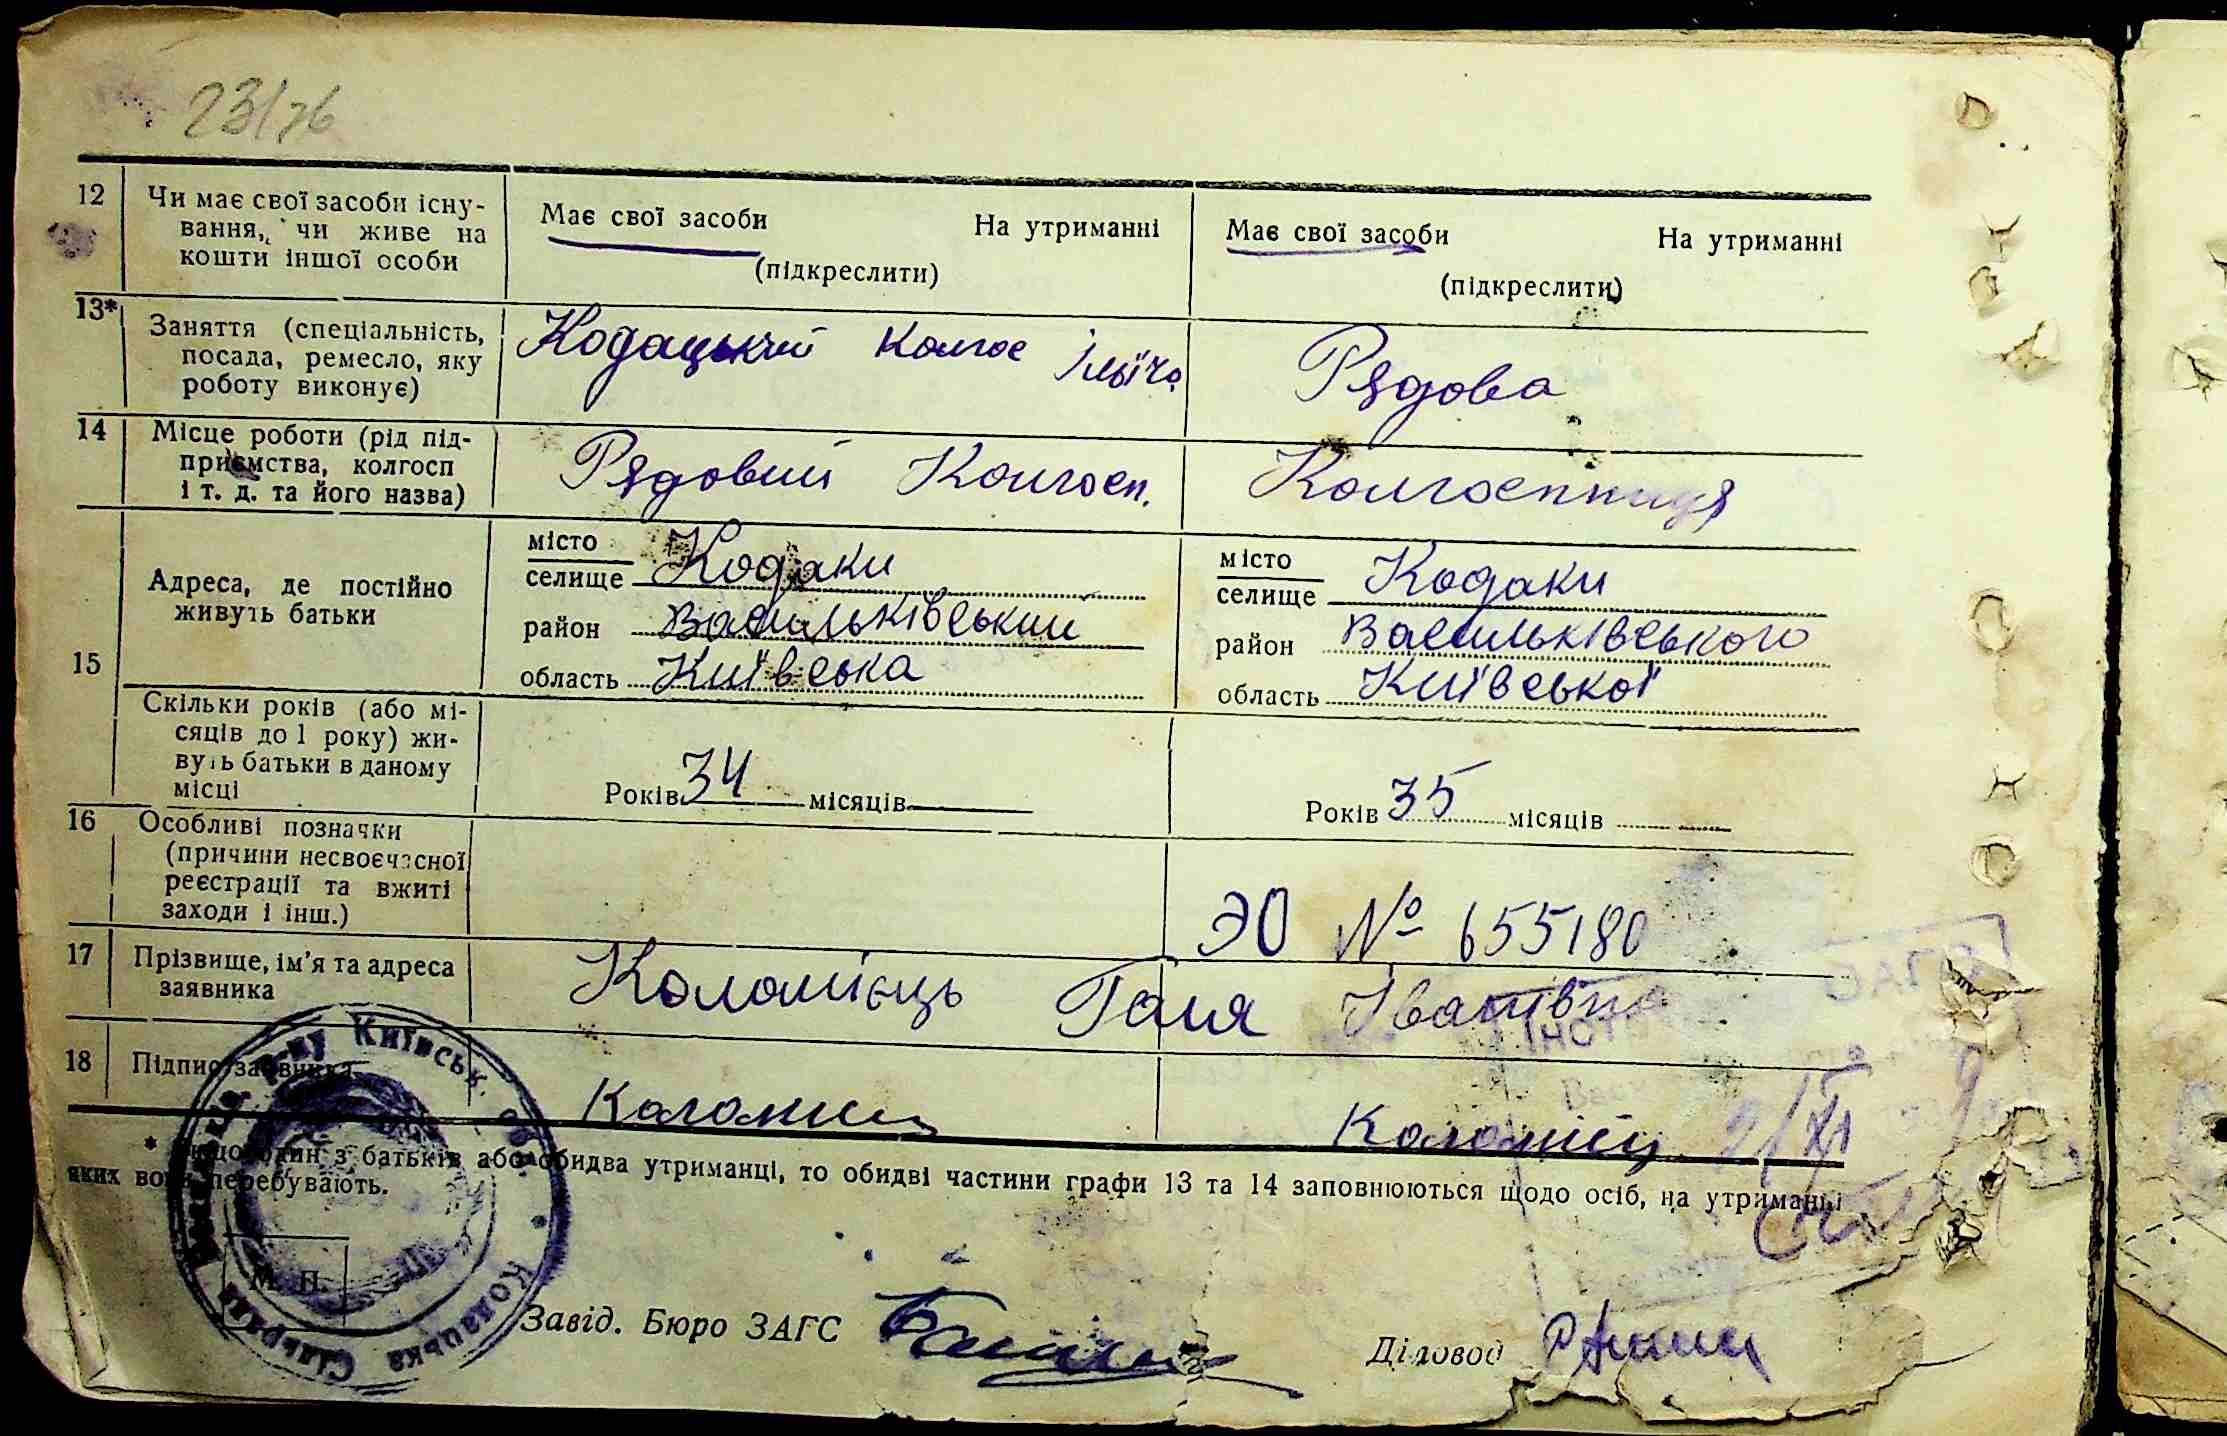 23/76
12 Чи має свої засоби існу-
вання, чи живе на
кошти іншої особи
Має свої засоби На утриманні
(підкреслити)
Має свої засоби На утриманні
(підкреслити)
13* Заняття (спеціальність,
посада, ремесло, яку
роботу виконує)
Кодацький Колгос Ілліча
Рядова
14 Місце роботи (рід під-
приємства, колгосп
і т. д. та його назва)
Рядовий Колгосп.
Колгоспниця
15 Адреса, де постійно
живуть батьки
місто
селище Кодаки
район Васильківський
область Київська
місто
селище Кодаки
район Васильківського
область Київської
Скільки років (або мі-
сяців до 1 року) жи-
вуть батьки в даному
місці
Років 34 місяців
Років 35 місяців
16 Особливі позначки
(причини несвоєчасної
реєстрації та вжиті
заходи і інш.)
ЭО № 655180
17 Прізвище, ім'я та адреса
заявника
Коломієць Галя Іванівна
18 Підпис заявника
Коломиец Коломієц
* Якщо один з батьків або обидва утриманці, то обидві частини графи 13 та 14 заповнюються щодо осіб, на утриманні
яких вони перебувають.
М. П.
Кодацька Сільрада р-ну Київськ.
Завід. Бюро ЗАГС
Діловод